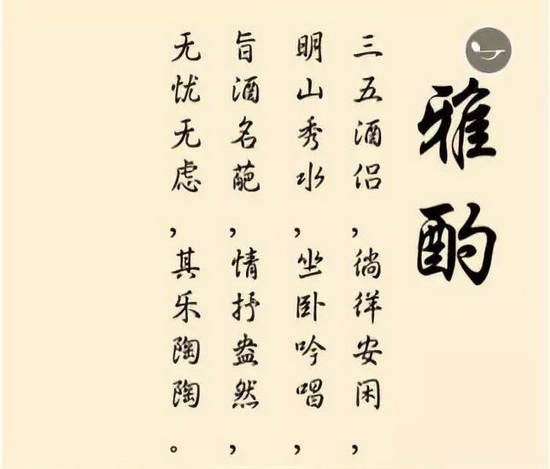 雅酌
三五酒侣,徜徉安闲,
明山秀水,坐卧吟唱,
旨酒名葩,情抒盎然,
无忧无虑,其乐陶陶。